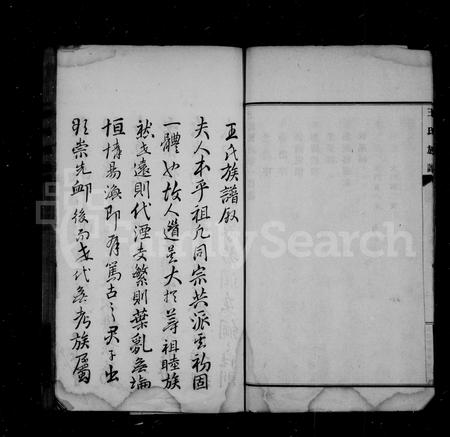 王氏族譜叙
夫人本乎祖凡同宗共派其初固
一體也故人道莫大於尊祖睦族
然世遠則代湮支繁則葉亂無論
恒情易渙即有篤古之君子出
思崇先卹後而世代無考族屬
王氏族譜
FamilySearch